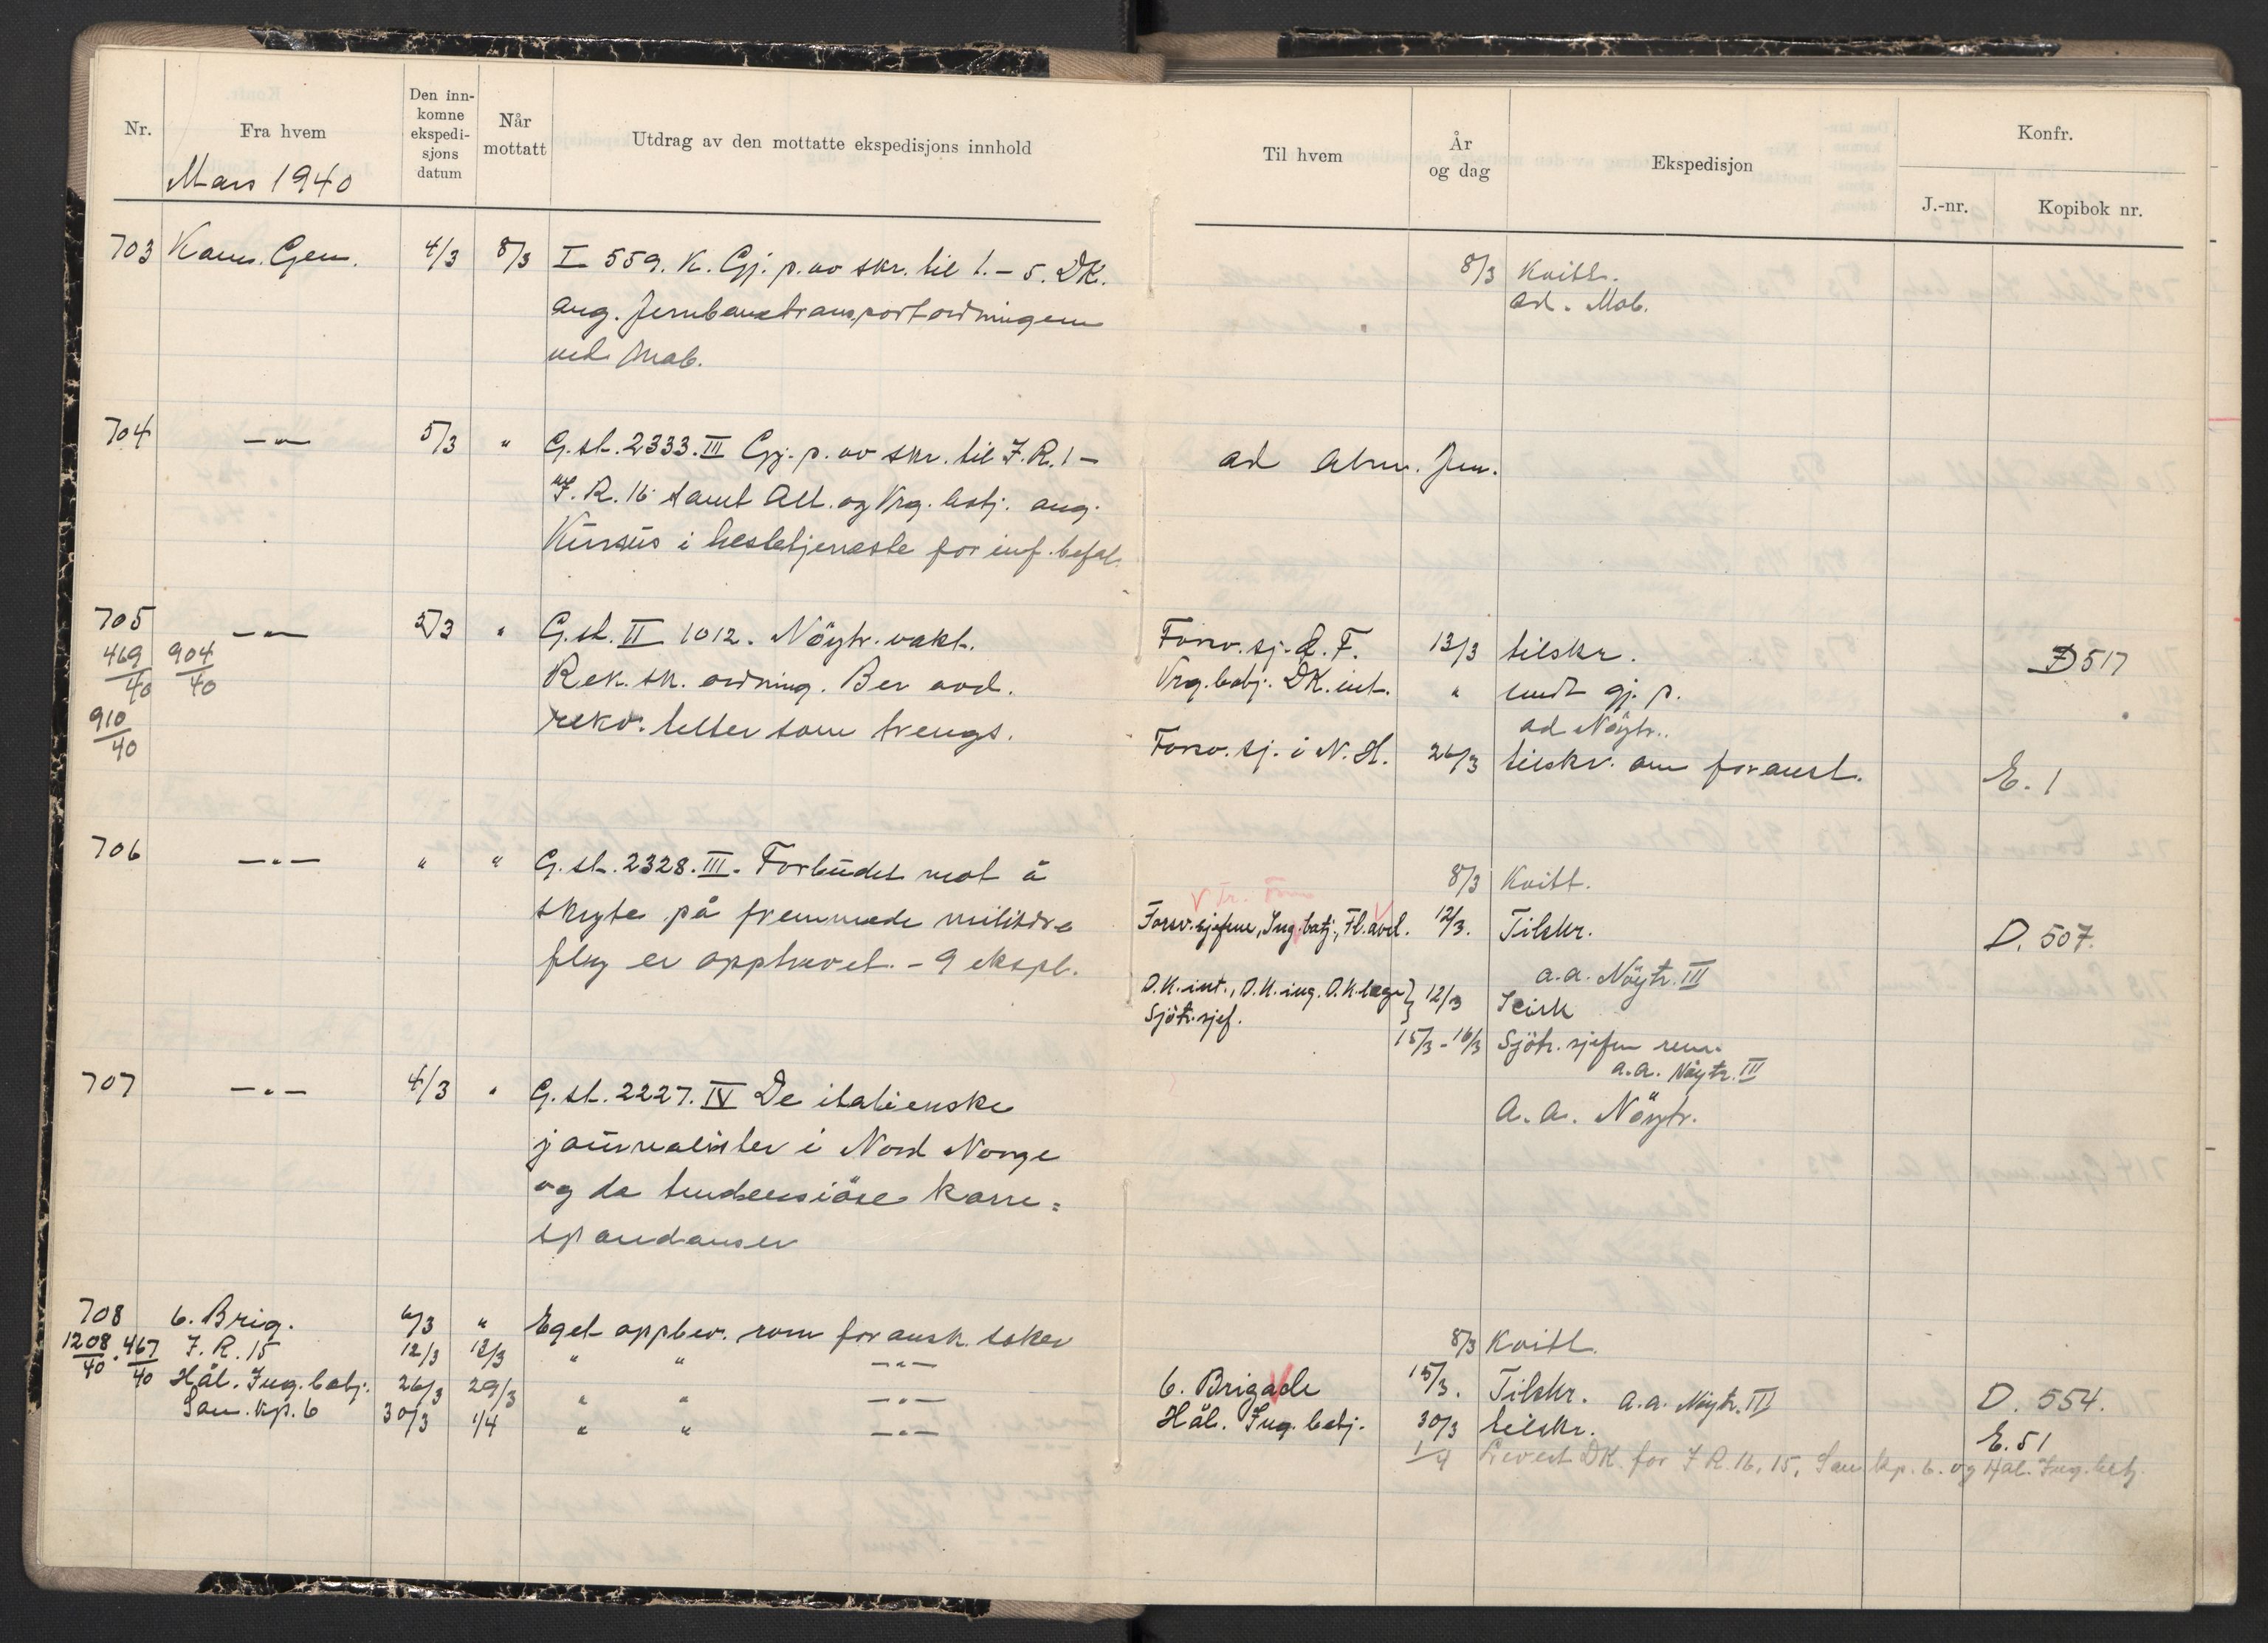 Nr.
Fra hvem
Den inn-
komne
ekspedi-
sjons
datum
Når
mottatt
Utdrag av den mottatte ekspedisjons innhold
Mars 1940
Til hvem
År
og dag
Ekspedisjon
Konfr.
J.-nr.
Kopibok nr.
703 Kom. Gen. 4/3 8/3 I 559. K. Gj. p. av skr. til 1. - 5. DK.
ang. Jernbanetransportordningen
ved Mob.
8/3 Kvitt.
ad. Mob.
704 —"— 5/3 " G.st. 2333. III Gj. p. av skr. til I.R. 1 -
I.R. 16 samt Alt. og Vrg. batj. ang.
Kursus i hestetjeneste for inf. befal.
ad
705 —"— 5/3 " G.st. II 1012. Nöytr. vakt.
469/40 904/40 Rek. sk. ordning. Ber avd.
910/40 rekv. telter som trengs.
Forsv. sj. Ö. F. 13/3 tilskr. D 517
Vrg. batj. DK. int. " sendt gj. p.
ad Nöytr.
Forsv. sj. i N. H. 26/3 tilskr. om foranst. E. 1
706 —"— " " G.st. 2328. III. Forbudet mot å
skyte på fremmede militære
fly er opphevet. - 9 ekspl.
8/3 Kvitt.
Forsv. sjefene, Ing. batj., Fl. avd. 12/3. Tilskr. D. 507.
a.a. Nöytr. III
D.K. int., D.K. ing. D.K. lege } 12/3 Sirk
Sjötr. sjef.
15/3 - 16/3 Sjötr. sjefen
a.a. Nöytr. III
707 —"— 4/3 " G.st. 2227. IV De italienske
journalister i Nord Norge
og de tendensiöse korre=
spondanser
A. a. Nöytr.
708 6. Brig. 6/3 " Eget oppbev. rom for ansk. saker
1208/40 . 467/40 I. R. 15 12/3 13/3 " " —"—
Hål. Ing. batj. 26/3 29/3 " " —"—
San. kp. 6 30/3 1/4 " " —"—
8/3 Kvitt.
6. Brigade 15/3. Tilskr. a.a. Nöytr. III D. 554.
Hål. Ing. batj. 30/3 tilskr. E. 51
1/4 Levert DK. for I R. 16, 15, San. kp. 6. og Hål. Ing. batj.